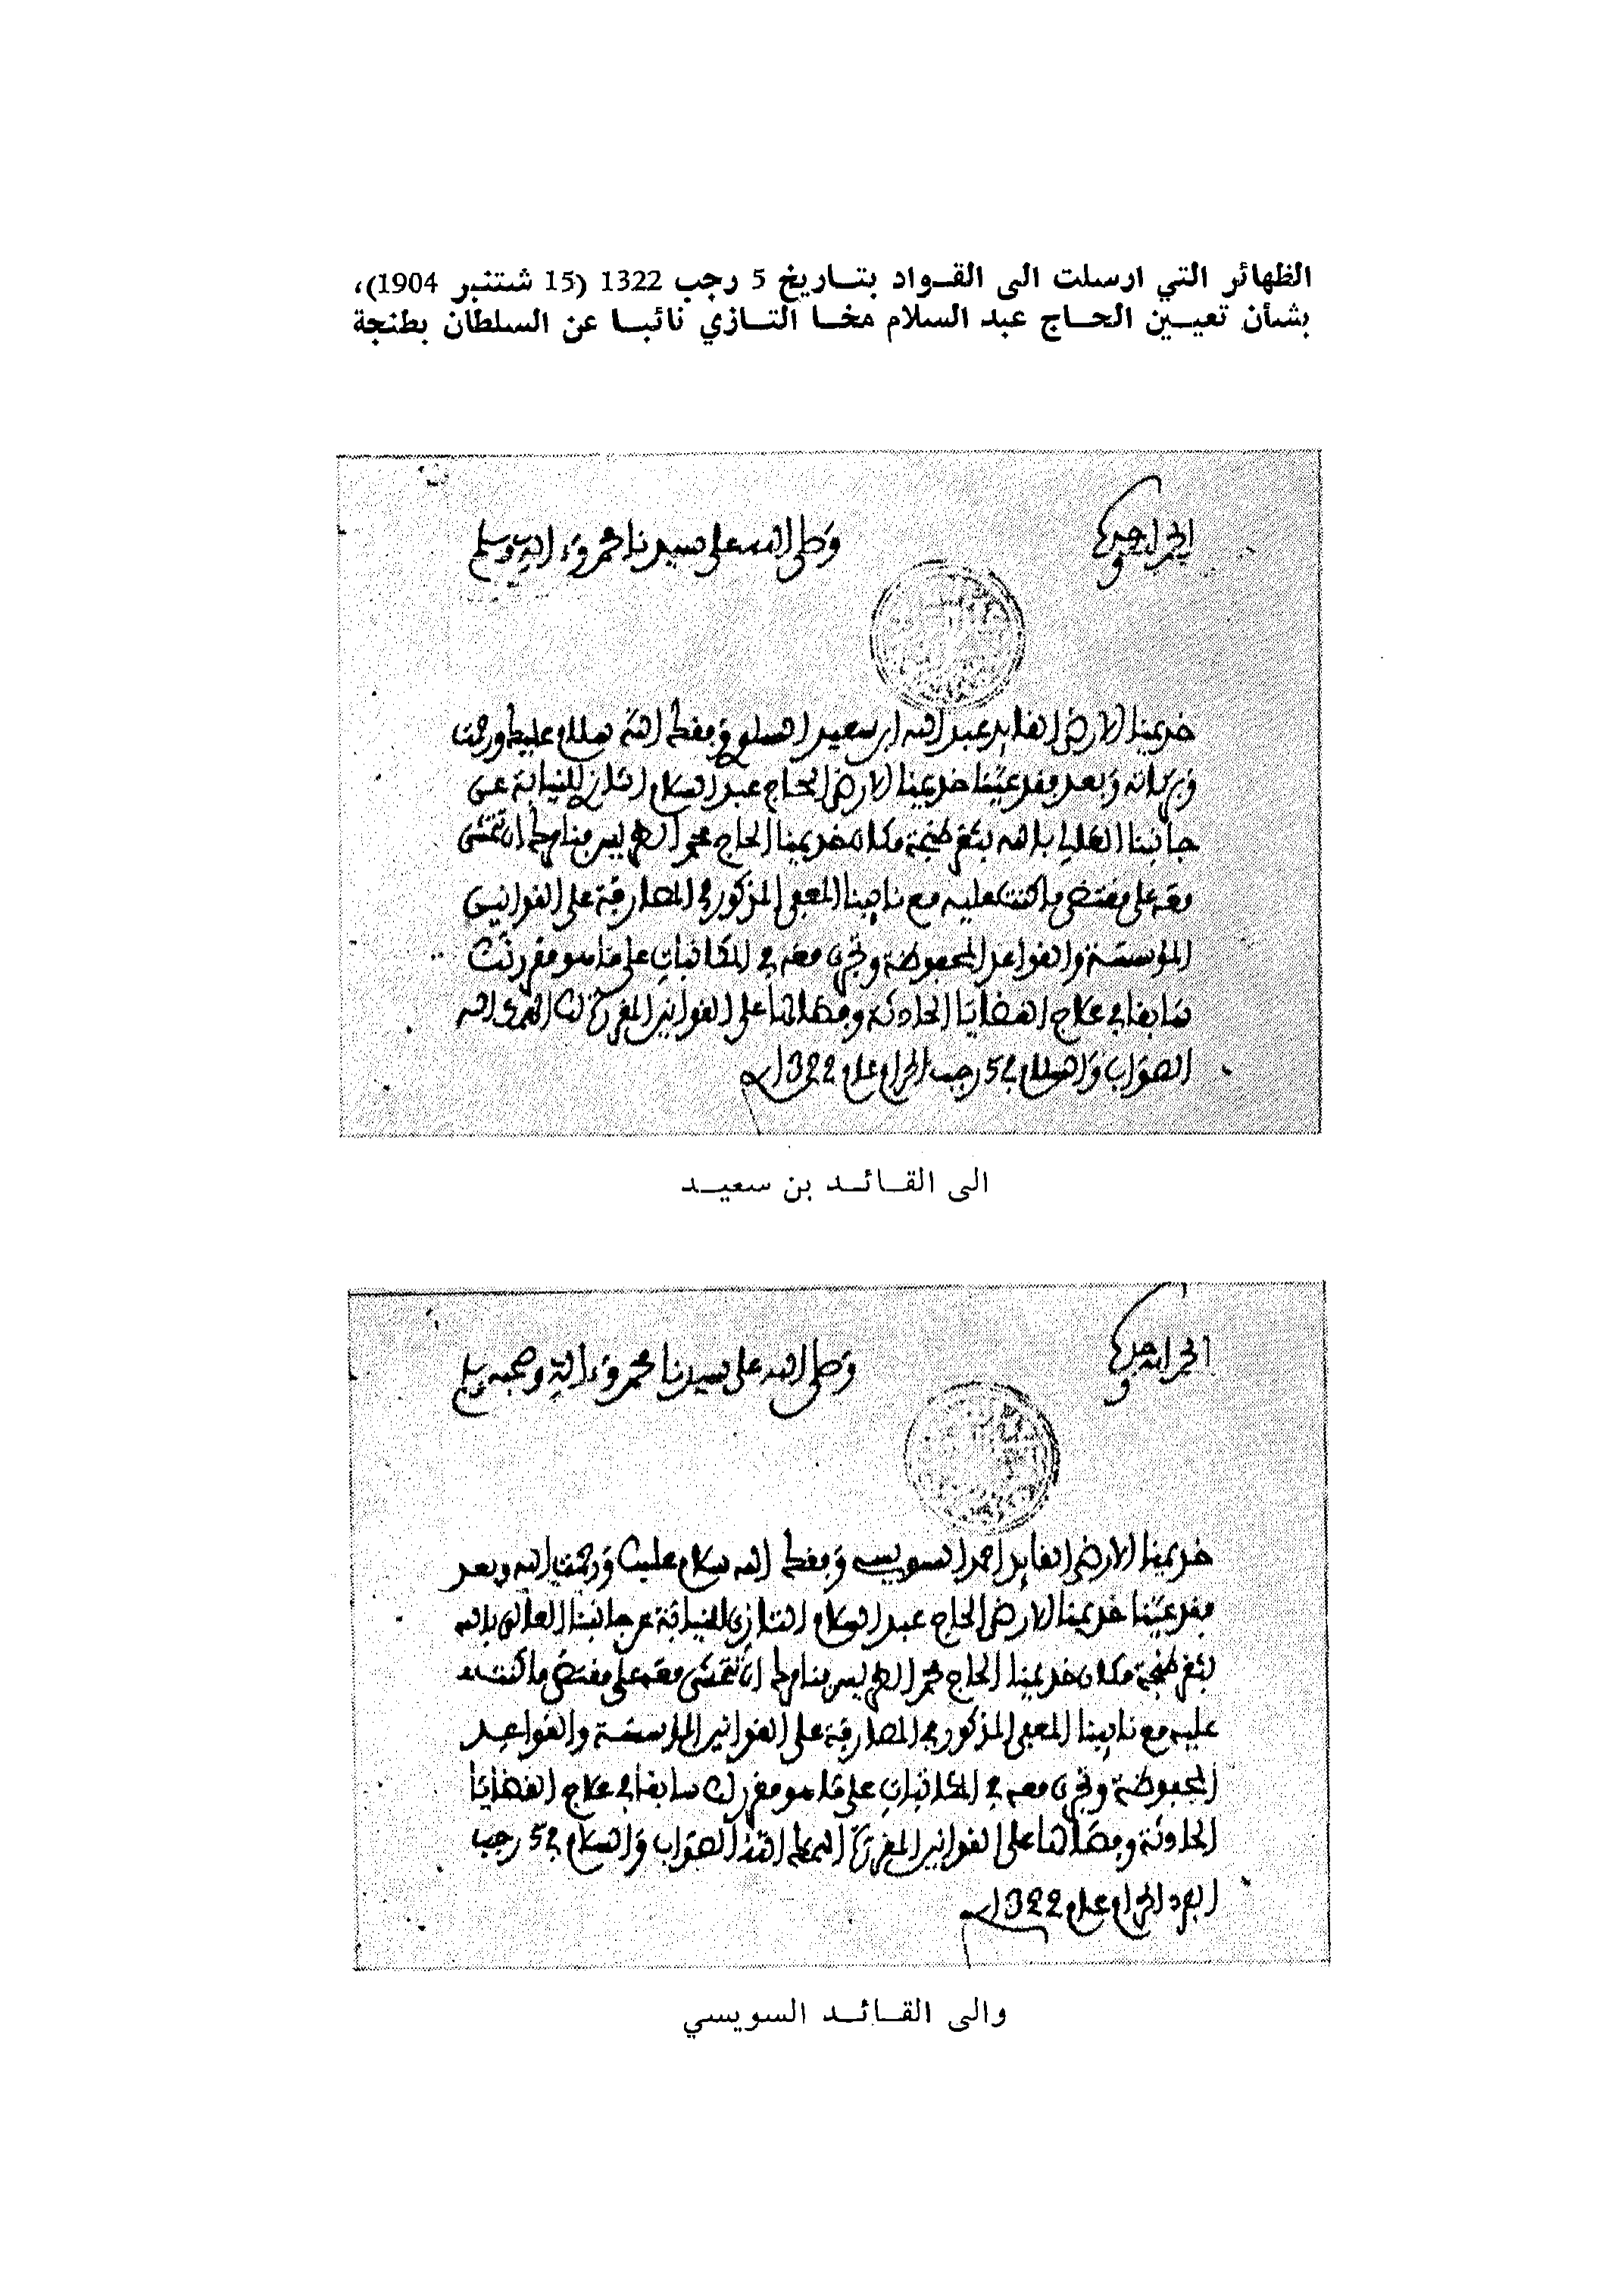 الظهائر التي ارسلت الى القـواد بتـاريخ 5 رجب 1322 (15 شتنبر 1904)،
بشأن تعيـين الحـاج عبد السلام مخـا التـازي نائبـا عن السلطان بطنجة
الحمد لله وحده
وصلى الله على سيدنا محمد وءاله وسلم
خديمنا الارضى القايد عبد الله ابن سعيد السلوي وفقك الله سلام عليك ورحمت
وبركاته وبعد فقد عينا خديمنا الارضى الحاج عبد السلام التازي للنيابة عن
جانبنا العالي بالله بثغر طنجة مكان خديمنا الحاج محمد الطريس فنامرك ان تتمشى
معه على مقتضى ما كنت عليه مع نايبنا المعفى المذكور في المصارفة على القوانين
المؤسسة والقواعد المحفوظة وتجري معه في المكاتبات على ما هو مقرر لك
سابقا في علاج القضايا الحادثة وفصالها على القوانين المقررة لك الهمك الله
الصواب والسلام في 5 رجب الحرام عام 1322
الى القـائـد بن سعيـد
الحمد لله وحده
وصلى الله على سيدنا محمد وءاله وصحبه وسلم
خديمنا الارضى القايد احمد السويسي وفقك الله سلام عليك ورحمت الله وبعد
فقد عينا خديمنا الارضى الحاج عبد السلام التازي للنيابة عن جانبنا العالي بالله
بثغر طنجة مكان خديمنا الحاج محمد الطريس فنامرك ان تتمشى معه على مقتضى ما كنت
عليه مع نايبنا المعفى المذكور في المصارفة على القوانين المؤسسة والقواعد
المحفوظة وتجري معه في المكاتبات على ما هو مقرر لك سابقا في علاج القضايا
الحادثة وفصالها على القوانين المقررة الهمك الله الصواب والسلام في 5 رجب
الفرد الحرام عام 1322
والى القـائـد السويسي